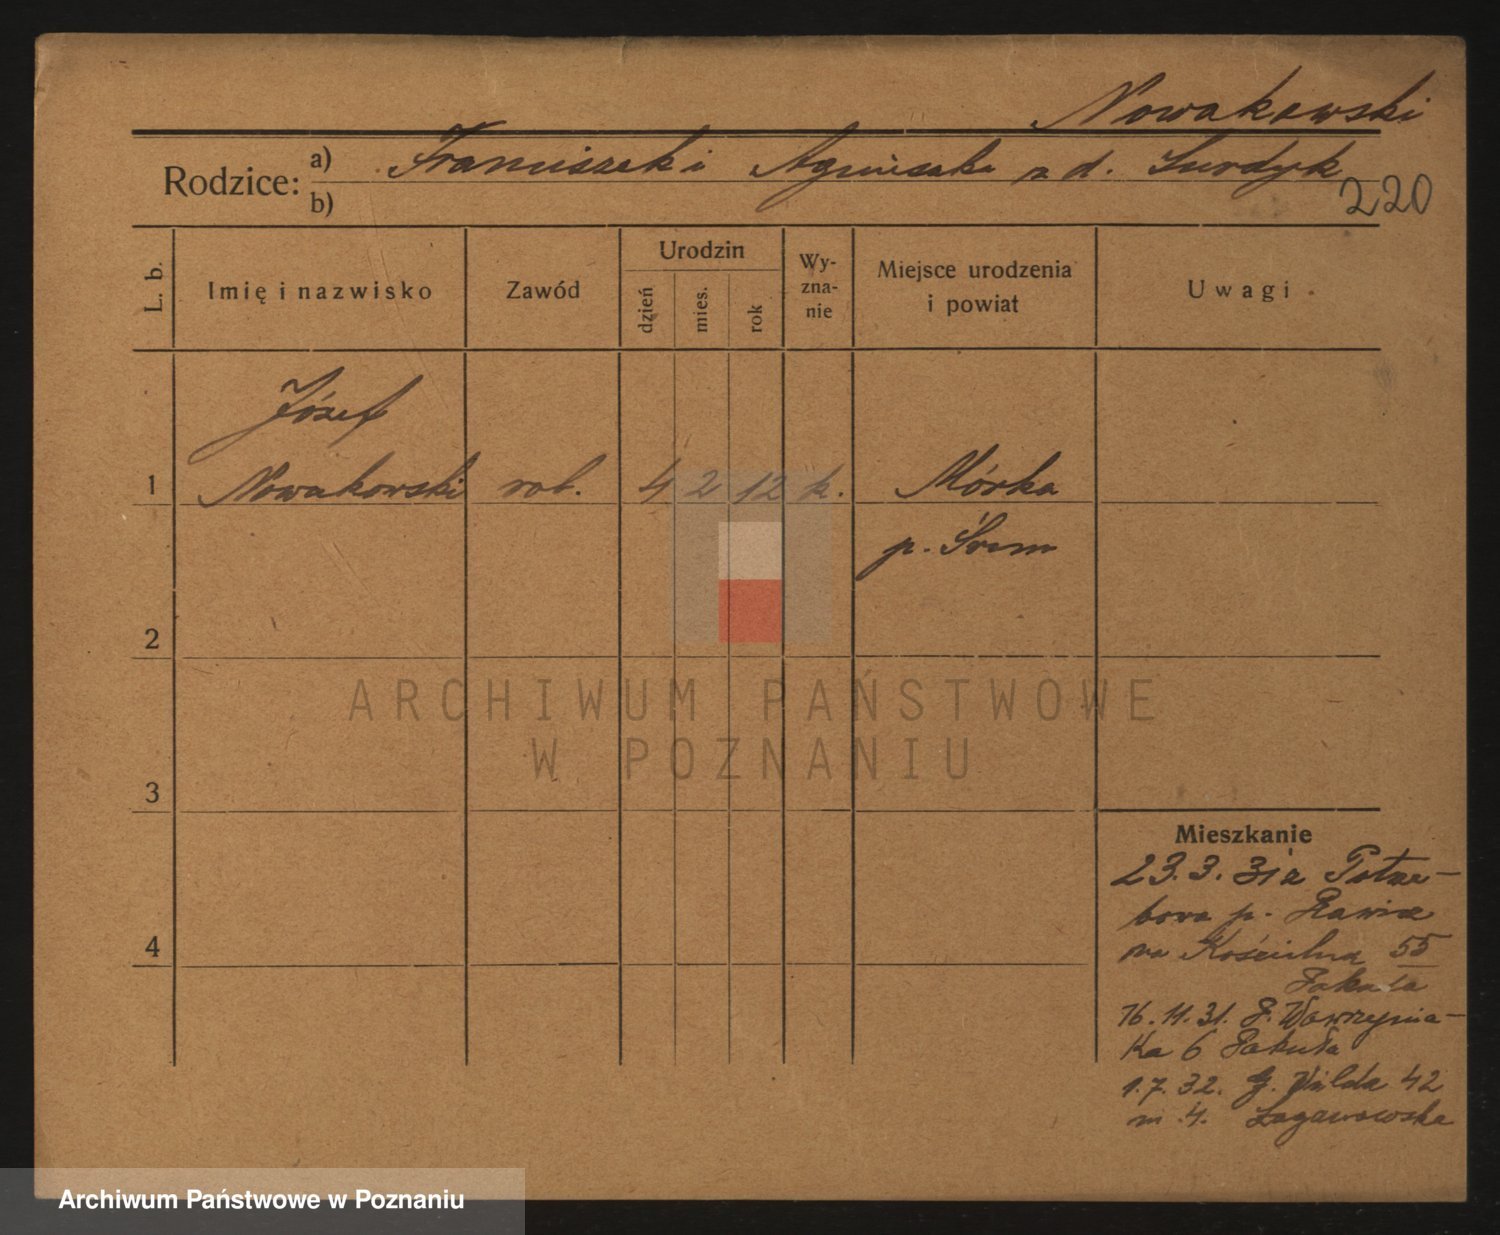 Nowakowski
Rodzice: a) Franciszek i Agnieszka z d. Surdyk
b)
220
L. b.
Imię i nazwisko
Zawód
Urodzin
dzień
mies.
rok
Wy-
zna-
nie
Miejsce urodzenia
i powiat
Uwagi
Józef
1 Nowakowski rob. 4 2 12 k. Mórka
p. Śrem
2
3
4
ARCHIWUM PAŃSTWOWE
W POZNANIU
Mieszkanie
23.3.31 a
p. Rawicz
na Kościelna 55
16.11.31. Wawrzynia-
ka 6
1.7.32. G. Wilda 42
m. 4.
Archiwum Państwowe w Poznaniu